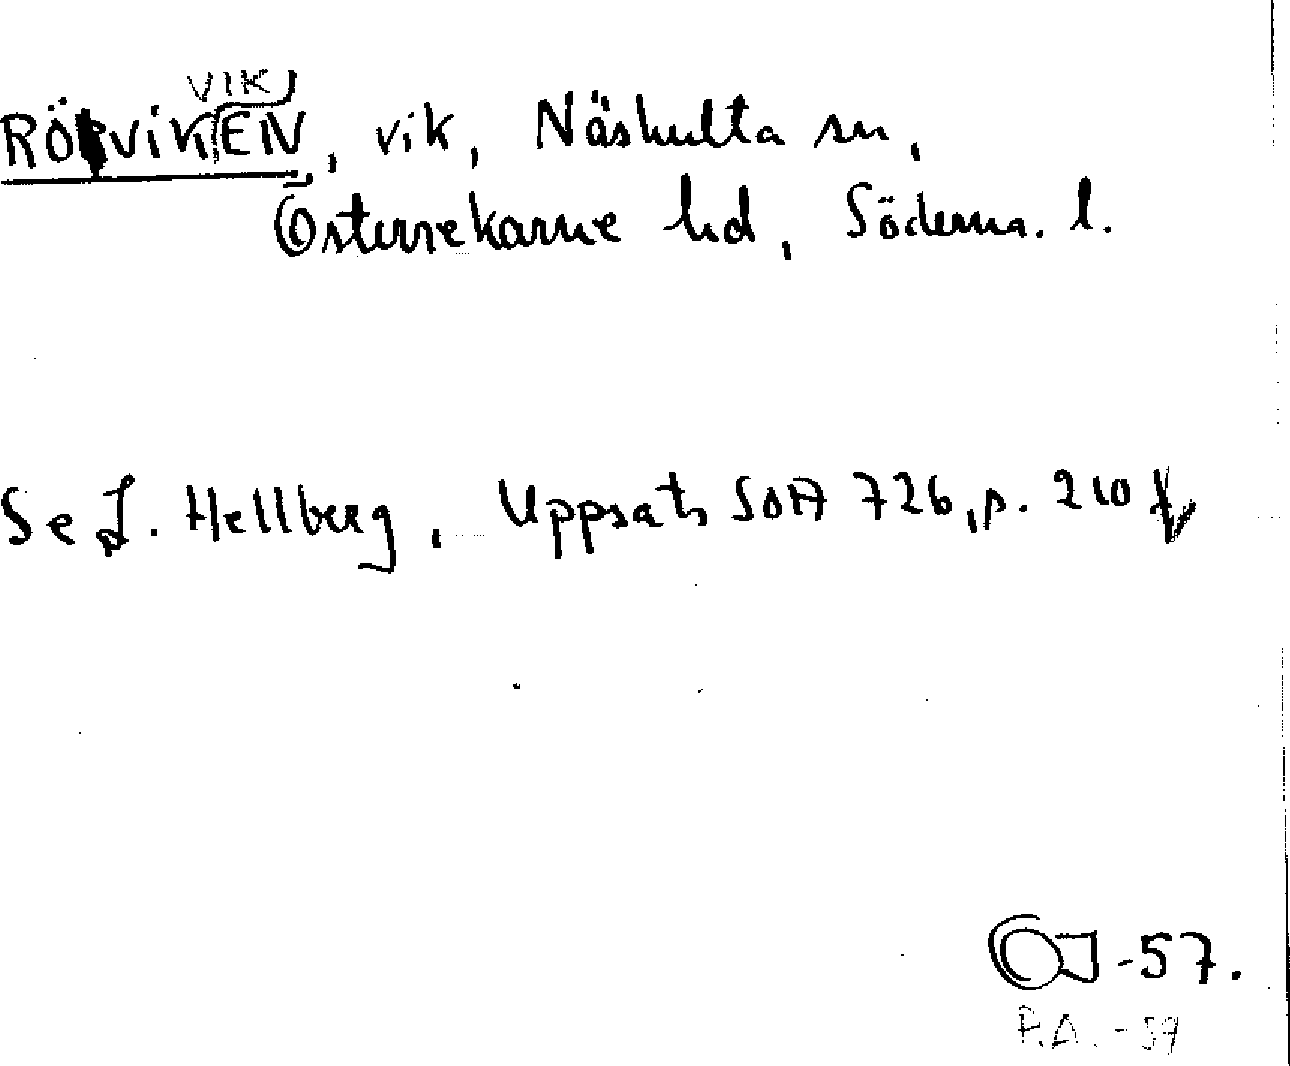 VIK
RÖRVIKEN, vik, Näshulta sn,
Österrekarne hd, Söderma. l.
Se L. Hellberg, Uppsats SOA 726, p. 210 f
OJ-57.
P.A. - 59